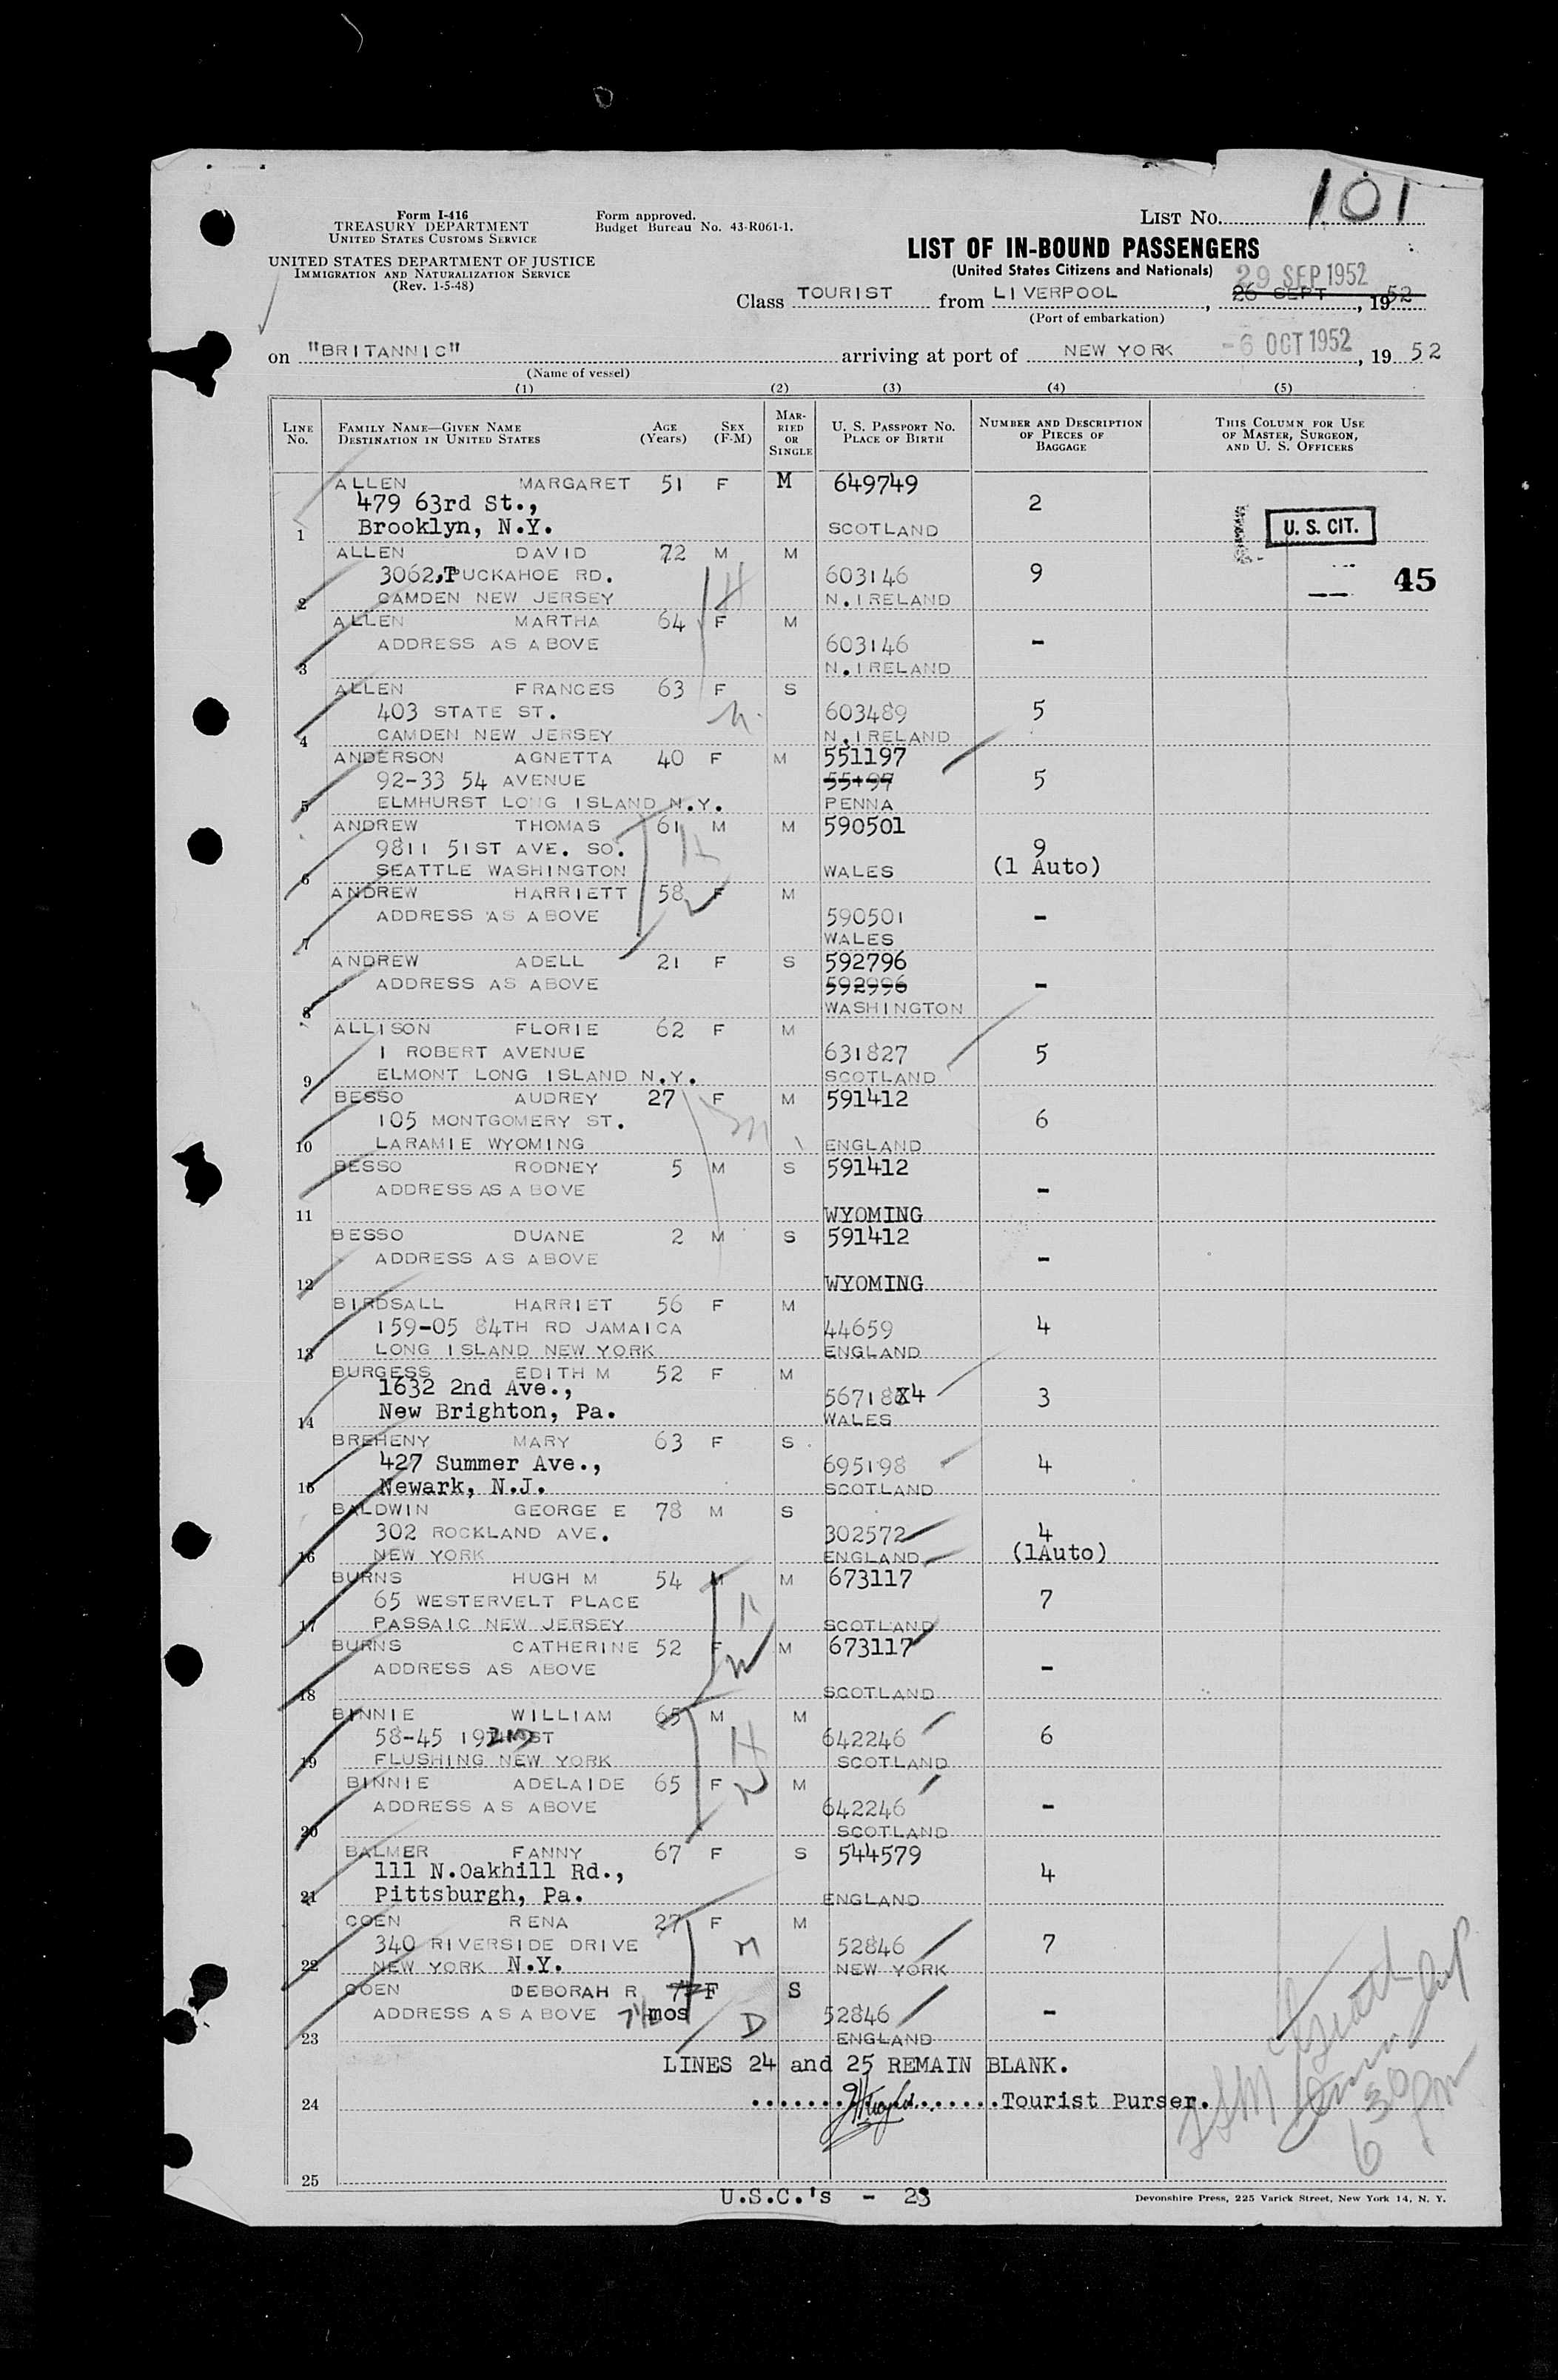 101
Form I-416
TREASURY DEPARTMENT
UNITED STATES CUSTOMS SERVICE
UNITED STATES DEPARTMENT OF JUSTICE
IMMIGRATION AND NATURALIZATION SERVICE
(Rev. 1-5-48)
Form approved.
Budget Bureau No. 43-R061-1.
LIST NO.
LIST OF IN-BOUND PASSENGERS
(United States Citizens and Nationals)
29 SEP 1952
Class TOURIST from LIVERPOOL, 26 SEPT, 1952
(Port of embarkation)
on "BRITANNIC" arriving at port of NEW YORK -6 OCT 1952, 19 52
(Name of vessel)
(1) (2) (3) (4) (5)
LINE No. FAMILY NAME—GIVEN NAME DESTINATION IN UNITED STATES AGE (Years) SEX (F-M) MARRIED OR SINGLE U. S. PASSPORT NO. PLACE OF BIRTH NUMBER AND DESCRIPTION OF PIECES OF BAGGAGE THIS COLUMN FOR USE OF MASTER, SURGEON, AND U. S. OFFICERS
ALLEN MARGARET 51 F M 649749
479 63rd St., 2
1 Brooklyn, N.Y. SCOTLAND U. S. CIT.
ALLEN DAVID 72 M M
3062,TUCKAHOE RD. 603146 9 45
2 CAMDEN NEW JERSEY N.IRELAND
ALLEN MARTHA 64 F M
ADDRESS AS ABOVE 603146 -
3 N.IRELAND
ALLEN FRANCES 63 F S
403 STATE ST. 603489 5
4 CAMDEN NEW JERSEY N.IRELAND
ANDERSON AGNETTA 40 F M 551197
92-33 54 AVENUE 55197 5
5 ELMHURST LONG ISLAND N.Y. PENNA
ANDREW THOMAS 61 M M 590501
9811 51ST AVE. SO. 9
6 SEATTLE WASHINGTON WALES (1 Auto)
ANDREW HARRIETT 58 F M
ADDRESS AS ABOVE 590501 -
7 WALES
ANDREW ADELL 21 F S 592796
ADDRESS AS ABOVE 592996 -
8 WASHINGTON
ALLISON FLORIE 62 F M
1 ROBERT AVENUE 631827 5
9 ELMONT LONG ISLAND N.Y. SCOTLAND
BESSO AUDREY 27 F M 591412
105 MONTGOMERY ST. 6
10 LARAMIE WYOMING ENGLAND
BESSO RODNEY 5 M S 591412
ADDRESS AS ABOVE -
11 WYOMING
BESSO DUANE 2 M S 591412
ADDRESS AS ABOVE -
12 WYOMING
BIRDSALL HARRIET 56 F M
159-05 84TH RD JAMAICA 44659 4
13 LONG ISLAND NEW YORK ENGLAND
BURGESS EDITH M 52 F M
1632 2nd Ave., 56718X4 3
14 New Brighton, Pa. WALES
BREHENY MARY 63 F S
427 Summer Ave., 695198 4
15 Newark, N.J. SCOTLAND
BALDWIN GEORGE E 78 M S
302 ROCKLAND AVE. 302572 4
16 NEW YORK ENGLAND (1Auto)
BURNS HUGH M 54 M M 673117
65 WESTERVELT PLACE 7
17 PASSAIC NEW JERSEY SCOTLAND
BURNS CATHERINE 52 F M 673117
ADDRESS AS ABOVE -
18 SCOTLAND
BINNIE WILLIAM 65 M M
58-45 192ND ST 642246 6
19 FLUSHING NEW YORK SCOTLAND
BINNIE ADELAIDE 65 F M
ADDRESS AS ABOVE 642246 -
20 SCOTLAND
BALMER FANNY 67 F S 544579
111 N.Oakhill Rd., 4
21 Pittsburgh, Pa. ENGLAND
COEN RENA 27 F M
340 RIVERSIDE DRIVE 52846 7
22 NEW YORK N.Y. NEW YORK
COEN DEBORAH R F S
ADDRESS AS ABOVE 7½ mos D 52846 -
23 ENGLAND
LINES 24 and 25 REMAIN BLANK.
24 Tourist Purser.
630 pm
25
U.S.C.'s - 23
Devonshire Press, 225 Varick Street, New York 14, N. Y.